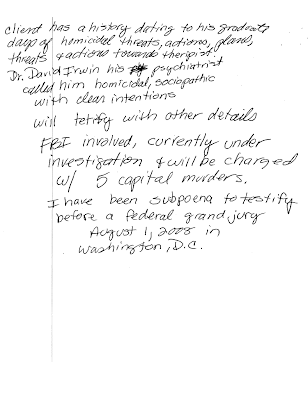 client has a history dating to his graduate
days of homicidal threats, actions, plans,
threats & actions towards therapist.
Dr. David Irwin his psychiatrist
called him homicidal, sociopathic
with clear intentions
will tetify with other details
FBI involved, currently under
investigation & will be charged
w/ 5 capital murders.
I have been subpoena to testify
before a federal grand jury
August 1, 2008 in
Washington, D.C.